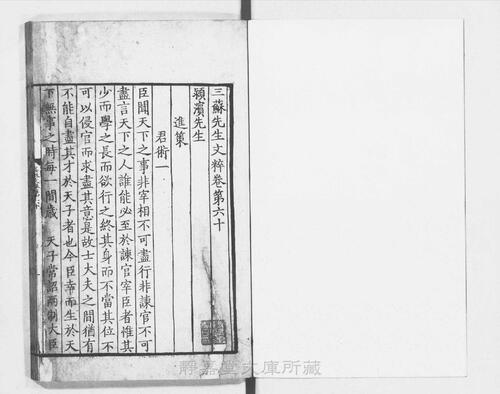 三蘇先生文粹卷第六十
穎濱先生
進策
君術一
臣聞天下之事非宰相不可盡行非諫官不可
盡言天下之人誰能必至於諫官宰臣者惟其
少而學之長而欲行之終其身而不當其位不
可以侵官而求盡其意是故士大夫之間猶有
不能自盡其才於天子者也今臣幸而生於天
下無事之時每一間歲 天子常詔兩制大臣
靜嘉堂文庫所藏